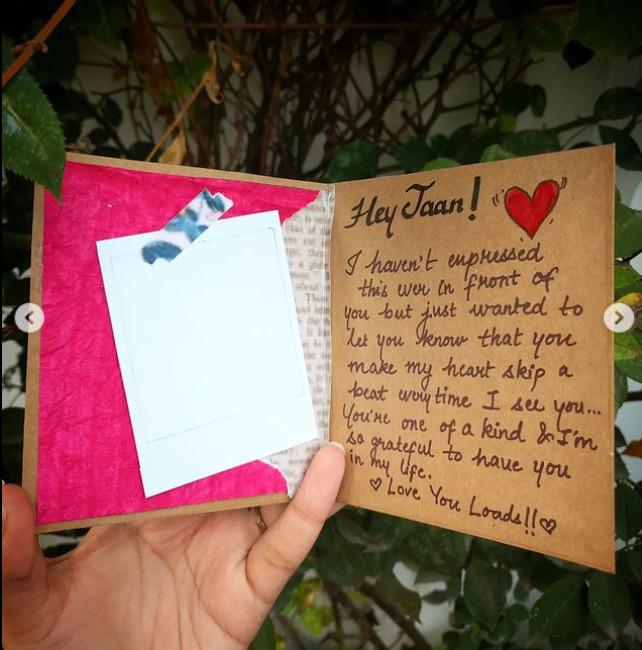 Hey Jaan!
I haven't expressed
this ever in front of
you but just wanted to
let you know that you
make my heart skip a
beat everytime I see you...
You're one of a kind & I'm
so grateful to have you
in my life.
♡Love You Loads!!♡